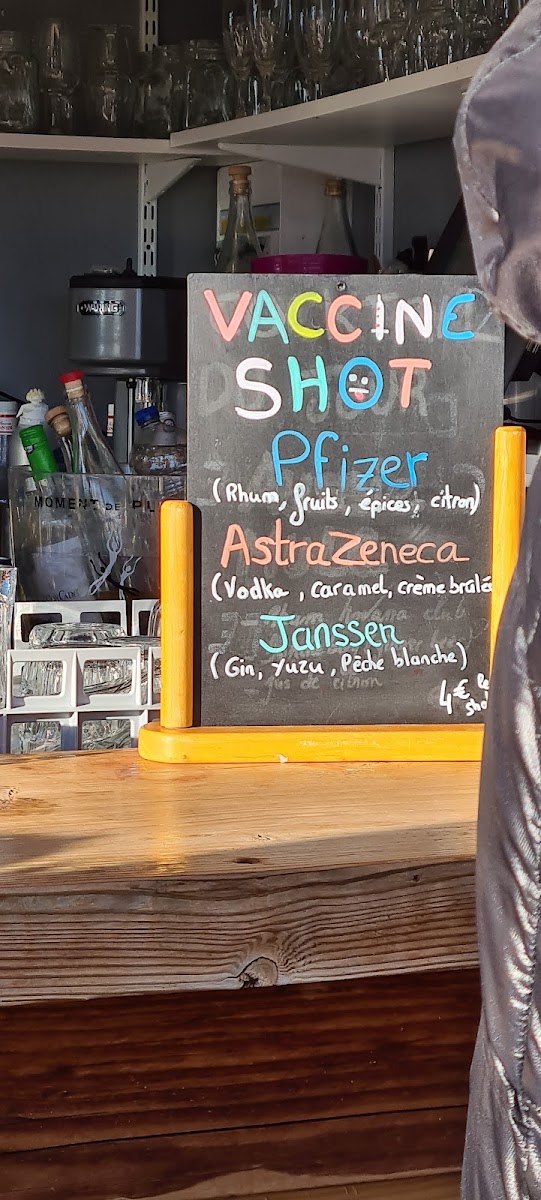 WARING
VACCINE
SHOT
Pfizer
(Rhum, fruits, épices, citron)
AstraZeneca
(Vodka, caramel, crème brulée
Janssen
(Gin, yuzu, Pêche blanche)
4€ le
shot
MOMENT DE PL